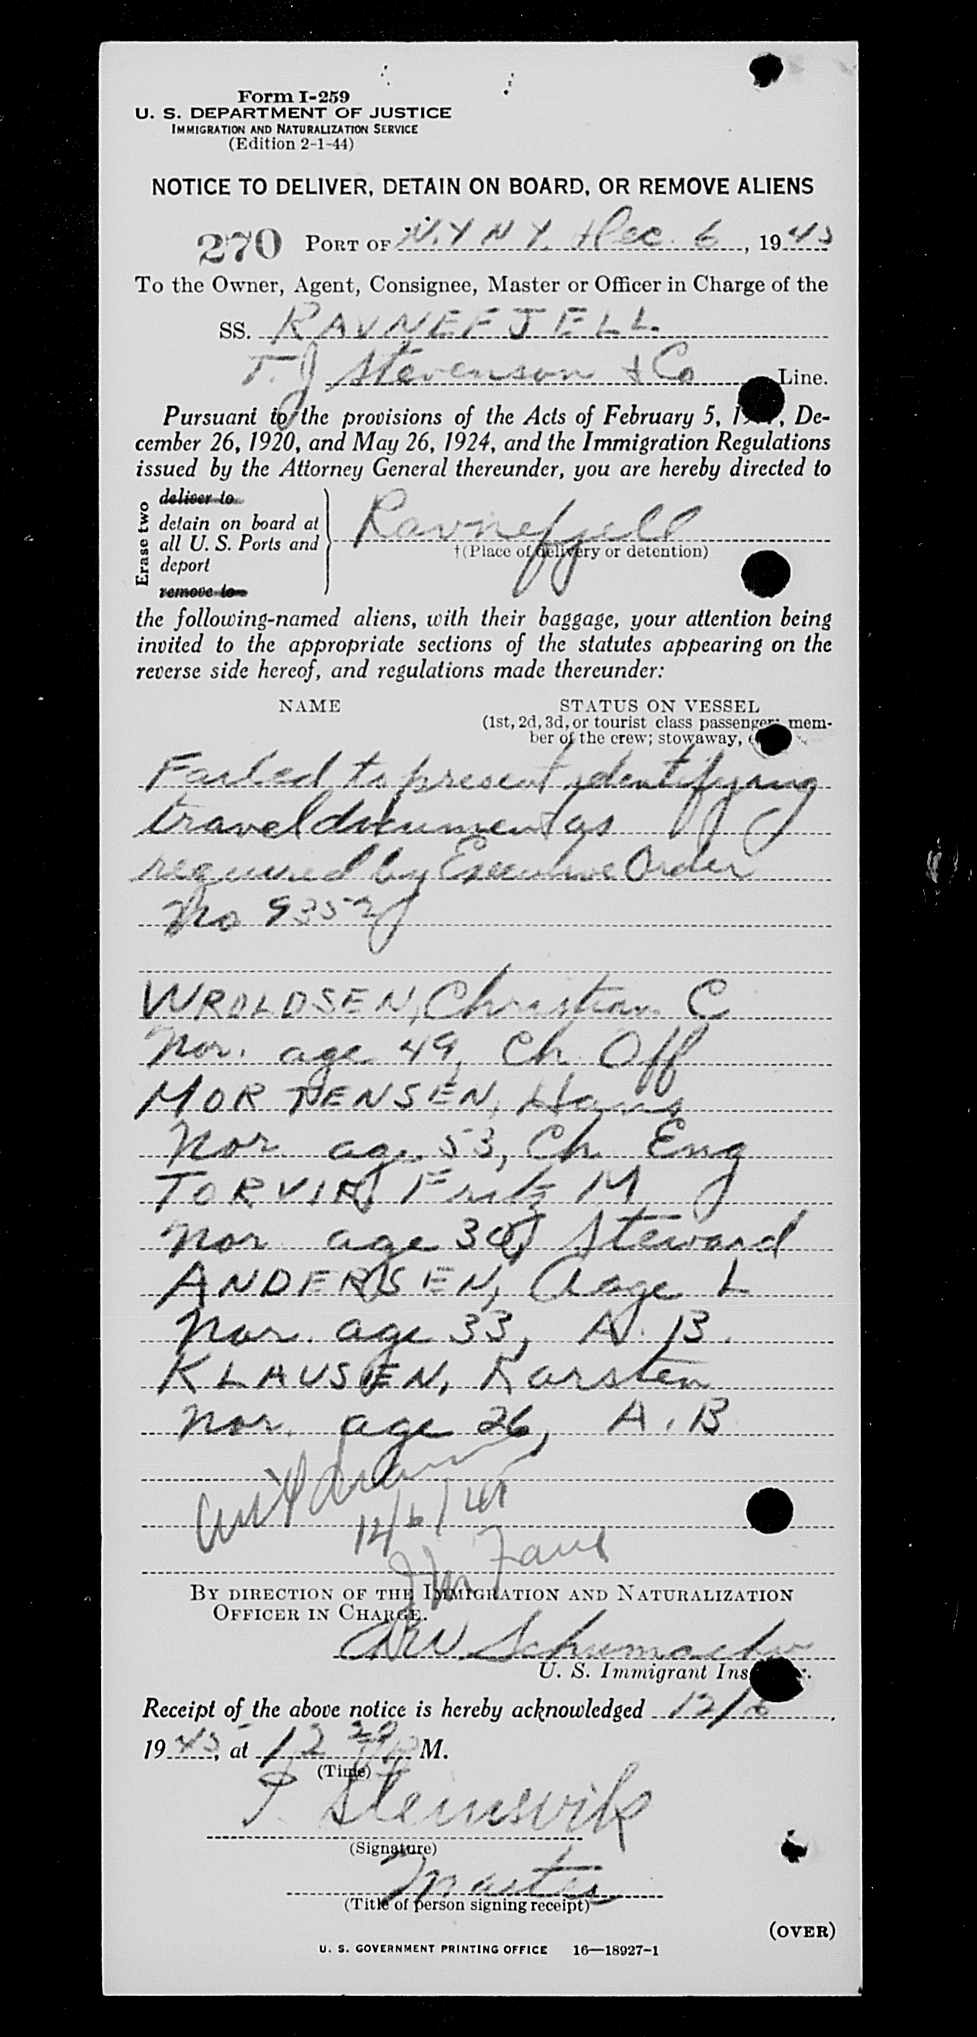 Form I-259
U. S. DEPARTMENT OF JUSTICE
IMMIGRATION AND NATURALIZATION SERVICE
(Edition 2-1-44)
NOTICE TO DELIVER, DETAIN ON BOARD, OR REMOVE ALIENS
270 PORT OF N.Y N Y. Dec. 6, 1945
To the Owner, Agent, Consignee, Master or Officer in Charge of the
SS. RAVNEFJELL
T. J Stevenson & Co Line.
Pursuant to the provisions of the Acts of February 5, De-
cember 26, 1920, and May 26, 1924, and the Immigration Regulations
issued by the Attorney General thereunder, you are hereby directed to
Erase two
deliver to
detain on board at
all U. S. Ports and
deport
remove to
Ravnefjell
†(Place of delivery or detention)
the following-named aliens, with their baggage, your attention being
invited to the appropriate sections of the statutes appearing on the
reverse side hereof, and regulations made thereunder:
NAME STATUS ON VESSEL
(1st, 2d, 3d, or tourist class passenger; mem-
ber of the crew; stowaway,
Failed to present identifying
travel document as
required by Executive Order
No 9352
WROLDSEN, Christian C
Nor. age 49, Ch Off
MORTENSEN, Hans
Nor. age 53, Ch Eng
Fritz M
Nor age 30, Steward
ANDERSEN, Aage L
Nor. age 33, A. B.
KLAUSEN, Karsten
Nor. age 26, A. B
BY DIRECTION OF THE IMMIGRATION AND NATURALIZATION
OFFICER IN CHARGE.
Schumacher
U. S. Immigrant Ins
Receipt of the above notice is hereby acknowledged 12/6,
1945, at 12 20 P M.
(Time)
Steinsvik
(Signature)
Master
(Title of person signing receipt)
(OVER)
U. S. GOVERNMENT PRINTING OFFICE 16—18927-1